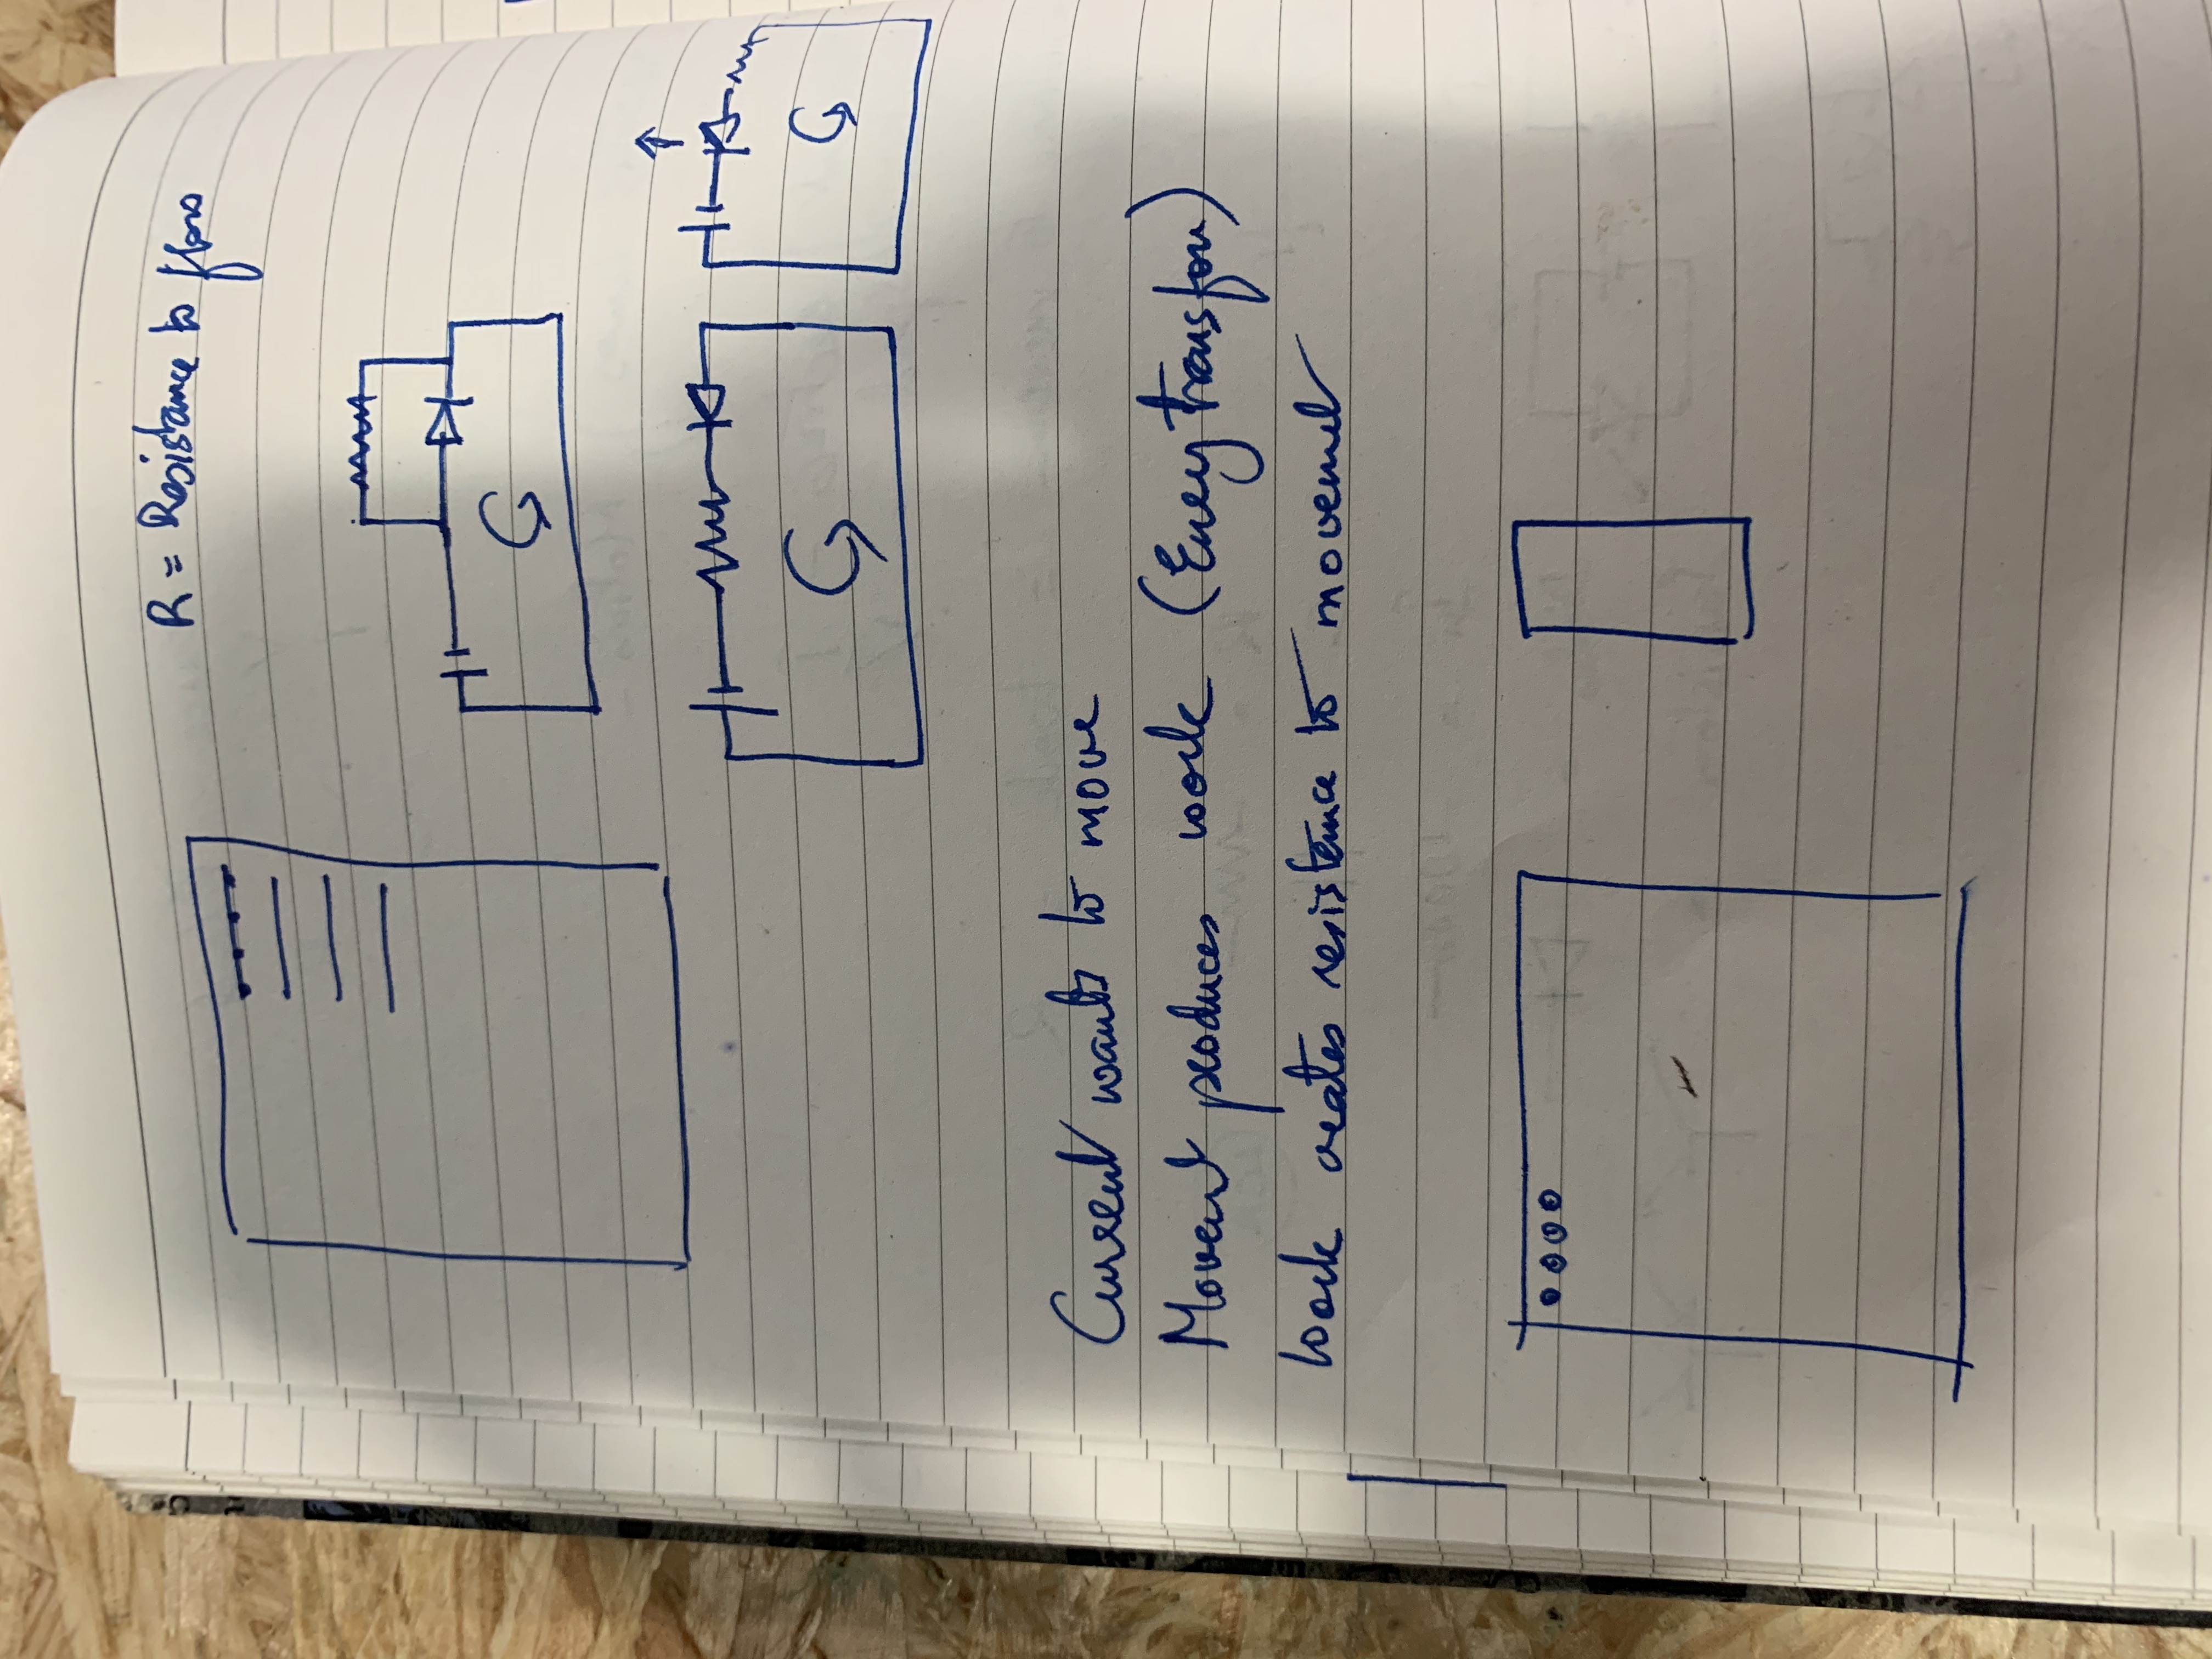 R = Resistance to flow
Current wants to move
Movent produces work (Enery transfon)
work creates resistance to movemet